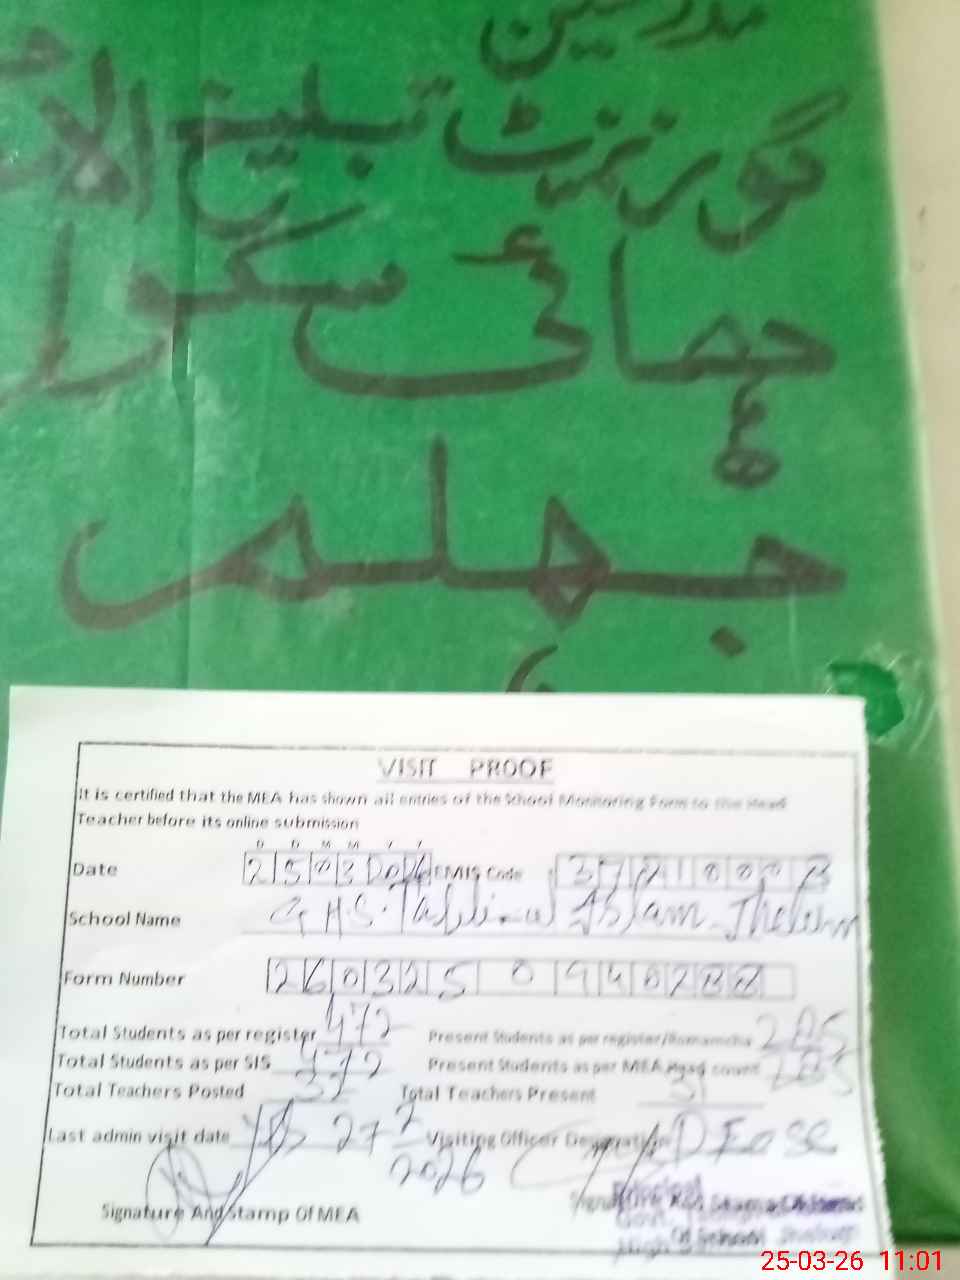 مدرسین
گورنمنٹ تبلیغ الا
ہائی سکول
جہلم
VISIT PROOF
It is certified that the MEA has shown all entries of the School Monitoring Form to the Head
Teacher before its online submission
D D M M Y Y
Date 25 03 2026 EMIS Code
School Name GHS. Tabligh ul Islam Jhelum
Form Number
Total Students as per register 472 Present Students as per register/Roznamcha 285
Total Students as per SIS 472 Present Students as per MEA Head count 285
Total Teachers Posted Total Teachers Present 31
Last admin visit date 27 2 2026 Visiting Officer Designation
Signature And Stamp Of MEA Signature And Stamp Of Head
Of School
Principal
Govt.
High
25-03-26 11:01